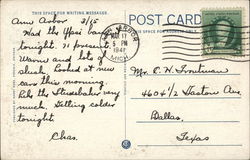 THIS SPACE FOR WRITING MESSAGES
POST CARD
Ann Arbor 3/15
Had the Ypsi band
tonight. 71 present.
Warm and lots of
slush. Looked at new
cars this morning
like the Studebaker very
much. Getting colder
tonight.
Chas.
ANN ARBOR
MAR 17
5 PM
1947
MICH
Mr. C. H. Troutman
4604½ Gaston Ave.
Dallas,
Texas